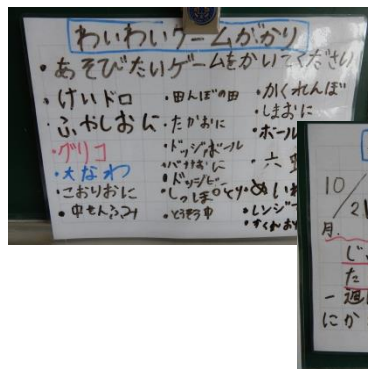 わいわいゲームがかり
・あそびたいゲームをかいてください
・けいドロ
・ふやしおに
・グリコ
・大なわ
・こおりおに
・中せんふみ
・田んぼの田
・たかおに
・ドッジボール
・バナナおに
・ドッジビー
・しっぽとり
・とうそう中
・かくれんぼ
・しまおに
・ボール
・六
・めいろ
・レンジ
10/2
月.
じ
た
一週
にか